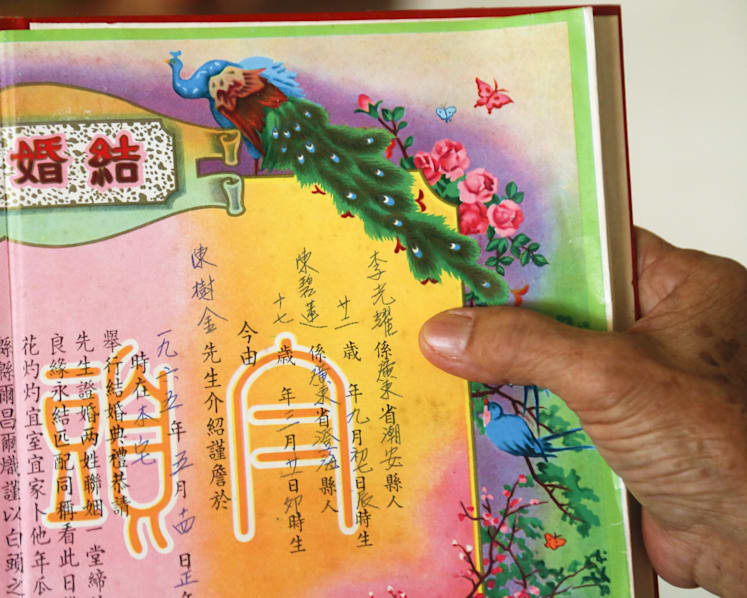 結婚
李光耀係廣東省潮安縣人
廿一歲 年九月初七日辰時生
陳碧蓮係廣東省澄海縣人
十七歲 年三月廿一日卯時生
今由
陳樹金先生介紹謹詹於
一九一五年五月十四日正
時在本宅
舉行結婚典禮恭請
先生證婚两姓聯姻一堂締
良緣永結匹配同稱看此日
花灼灼宜室宜家卜他年瓜
緜緜爾昌爾熾謹以白頭之
白頭